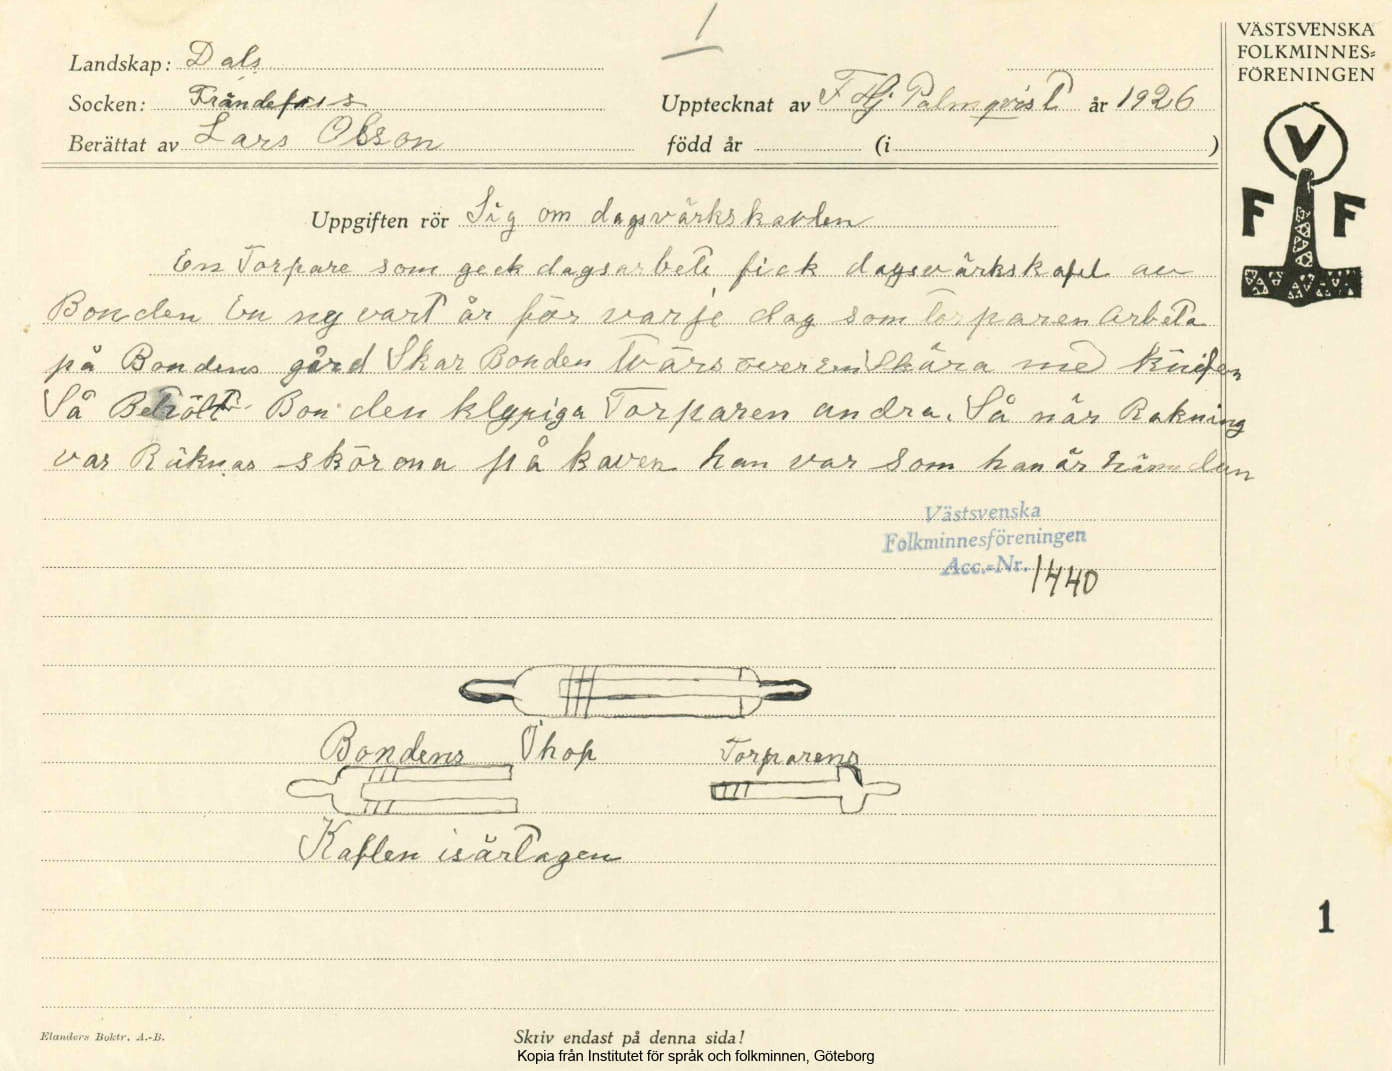 1
VÄSTSVENSKA
FOLKMINNES=
FÖRENINGEN
V
F F
Landskap: Dals
Socken: Frändefors
Berättat av Lars Olsson
Upptecknat av F Hj. Palmqvist år 1926
född år (i )
Uppgiften rör Sig om dagsvärkskavlen
En Torpare som geck dagsarbete fick dagsvärkskafel av
Bonden En ny vart år för varje dag som torparen Arbeta
på Bondens gård Skar Bonden Tvärs över en Skåra med knifen
Så Behölt Bonden klypiga Torparen andra. Så när Rakning
var Räknas skörona på kaven han var som han är hän dan
Västsvenska
Folkminnesföreningen
Acc.-Nr. 1440
Bondens Ihop Torparens
Kaflen isärtagen
1
Elanders Boktr. A.-B.
Skriv endast på denna sida!
Kopia från Institutet för språk och folkminnen, Göteborg